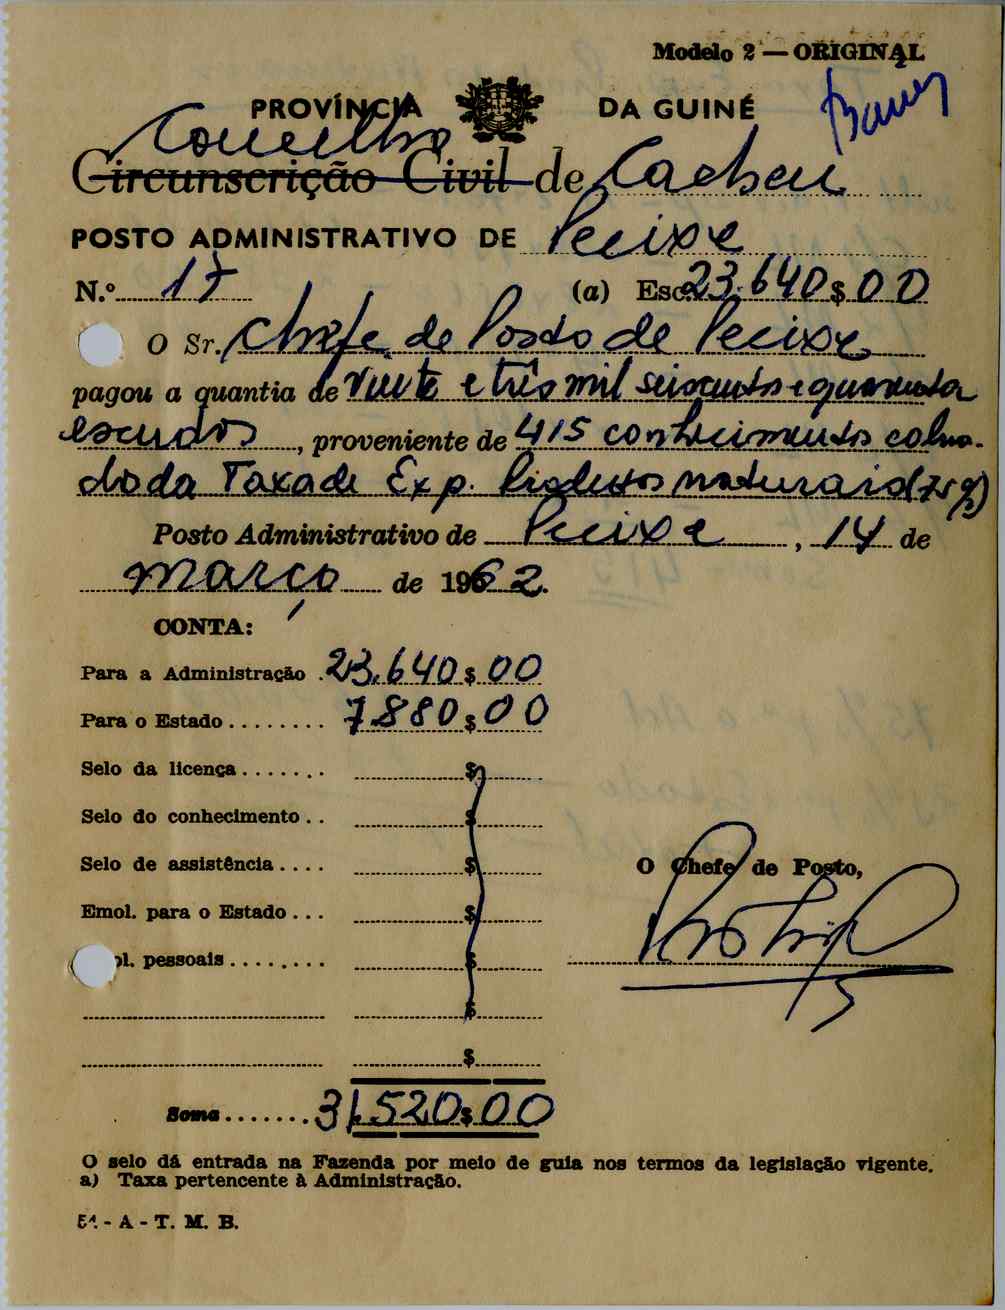 Modelo 2 — ORIGINAL
PROVÍNCIA DA GUINÉ
Concelho
Circunscrição Civil de Cacheu
POSTO ADMINISTRATIVO DE Pecixe
N.º 17 (a) Esc. 23.640$00
O Sr. Chefe de Posto de Pecixe
pagou a quantia de vinte e três mil seiscentos e quarenta
escudos, proveniente de 415 conhecimentos cobra-
do da Taxa de Exp. Produtos naturais (75%)
Posto Administrativo de Pecixe, 14 de
março de 1962.
CONTA:
Para a Administração . 23.640$00
Para o Estado ........ 7.880$00
Selo da licença ....... $
Selo do conhecimento .. $
Selo de assistência .... $
O Chefe de Posto,
Emol. para o Estado ... $
ol. pessoais ........ $
$
$
Soma ....... 31.520$00
O selo dá entrada na Fazenda por meio de guia nos termos da legislação vigente.
a) Taxa pertencente à Administração.
5ª. - A - T. M. B.